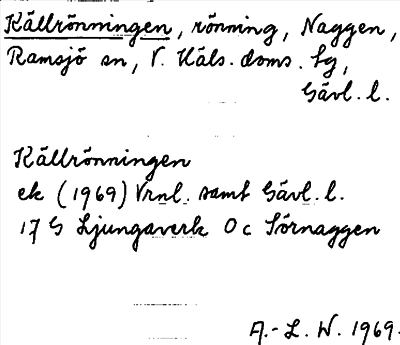 Källrönningen, rönning, Naggen,
Ramsjö sn, V. Häls. doms. tg,
Gävl. l.
Källrönningen
ek (1969) Vrnl. samt Gävl. l.
17 G Ljungaverk 0 c Sörnaggen
A.-L. W. 1969.